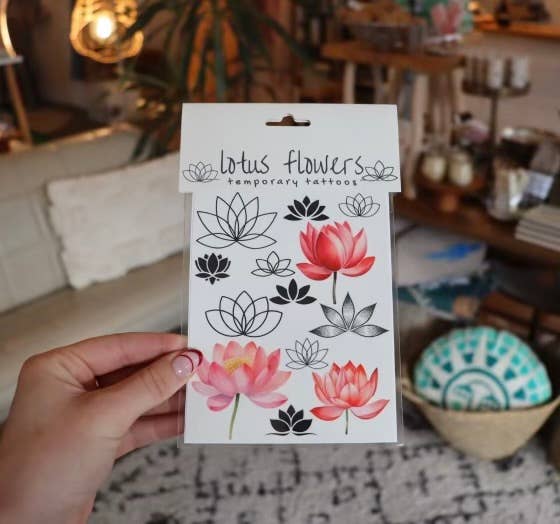 lotus flowers
temporary tattoos